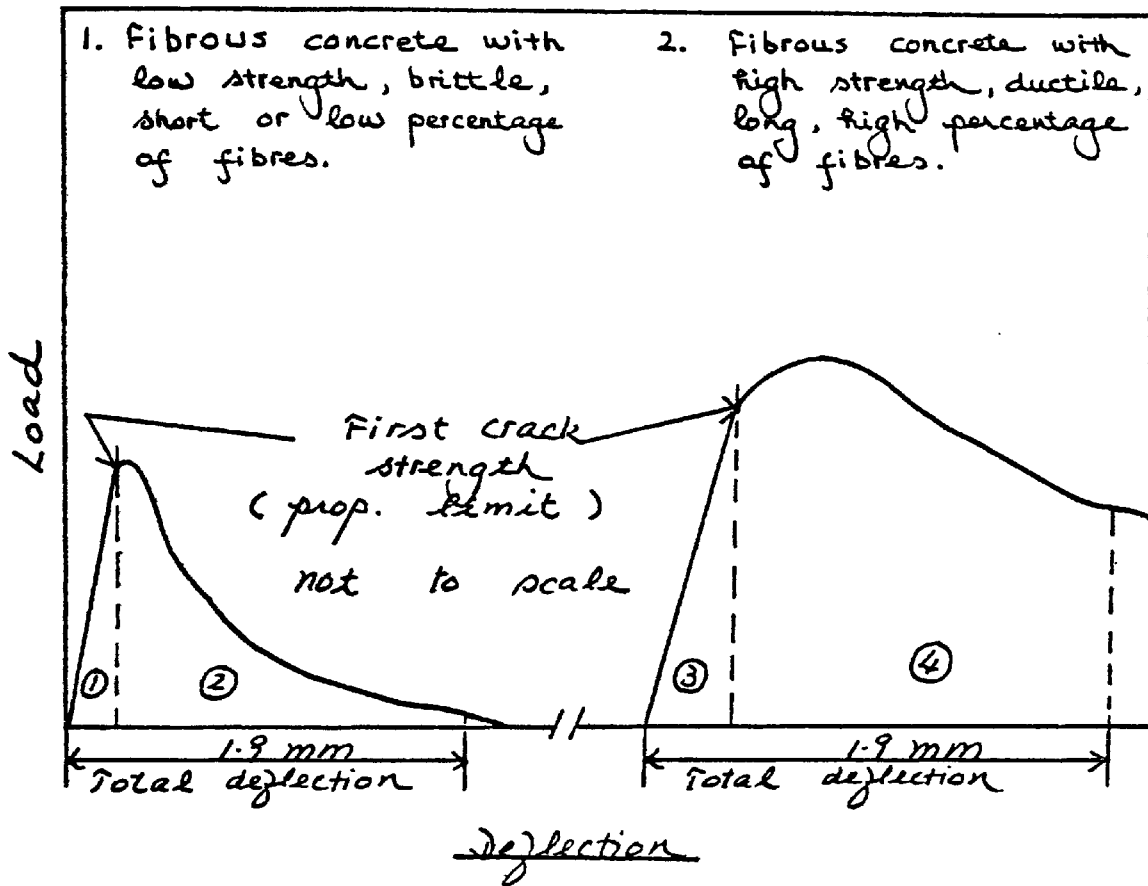 1. Fibrous concrete with
low strength, brittle,
short or low percentage
of fibres.
2. Fibrous concrete with
high strength, ductile,
long, high percentage
of fibres.
Load
First crack
strength
(prop. limit)
not to scale
① ② ③ ④
1.9 mm
Total deflection
1.9 mm
Total deflection
Deflection